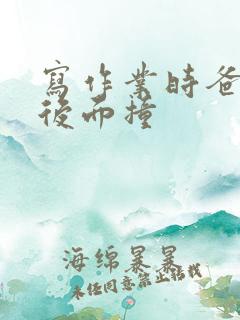 寫作業時爸
後面撞
海绵暴暴
未经同意禁止转载